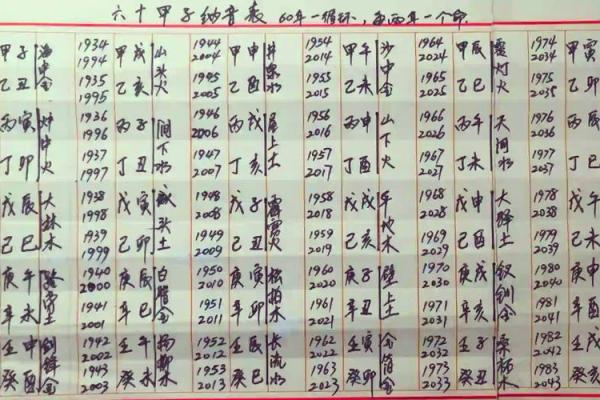 六十甲子纳音表 60年一循环，每两年一个命
甲子 海中金 1934 1994 甲戌 山头火 1944 2004 甲申 井泉水 1954 2014 甲午 沙中金 1964 2024 甲辰 覆灯火 1974 2034 甲寅
乙丑 1935 1995 乙亥 1945 2005 乙酉 1955 2015 乙未 1965 2025 乙巳 1975 2035 乙卯
丙寅 炉中火 1936 1996 丙子 涧下水 1946 2006 丙戌 屋上土 1956 2016 丙申 山下火 1966 2026 丙午 天河水 1976 2036 丙辰
丁卯 1937 1997 丁丑 1947 2007 丁亥 1957 2017 丁酉 1967 2027 丁未 1977 2037 丁巳
戊辰 大林木 1938 1998 戊寅 城头土 1948 2008 戊子 霹雳火 1958 2018 戊戌 平地木 1968 2028 戊申 大驿土 1978 2038 戊午
己巳 1939 1999 己卯 1949 2009 己丑 1959 2019 己亥 1969 2029 己酉 1979 2039 己未
庚午 路旁土 1940 2000 庚辰 白腊金 1950 2010 庚寅 松柏木 1960 2020 庚子 壁上土 1970 2030 庚戌 钗钏金 1980 2040 庚申
辛未 1941 2001 辛巳 1951 2011 辛卯 1961 2021 辛丑 1971 2031 辛亥 1981 2041 辛酉
壬申 剑锋金 1942 2002 壬午 杨柳木 1952 2012 壬辰 长流水 1962 2022 壬寅 金箔金 1972 2032 壬子 桑柘木 1982 2042 壬戌
癸酉 1943 2003 癸未 1953 2013 癸巳 1963 2023 癸卯 1973 2033 癸丑 1983 2043 癸亥